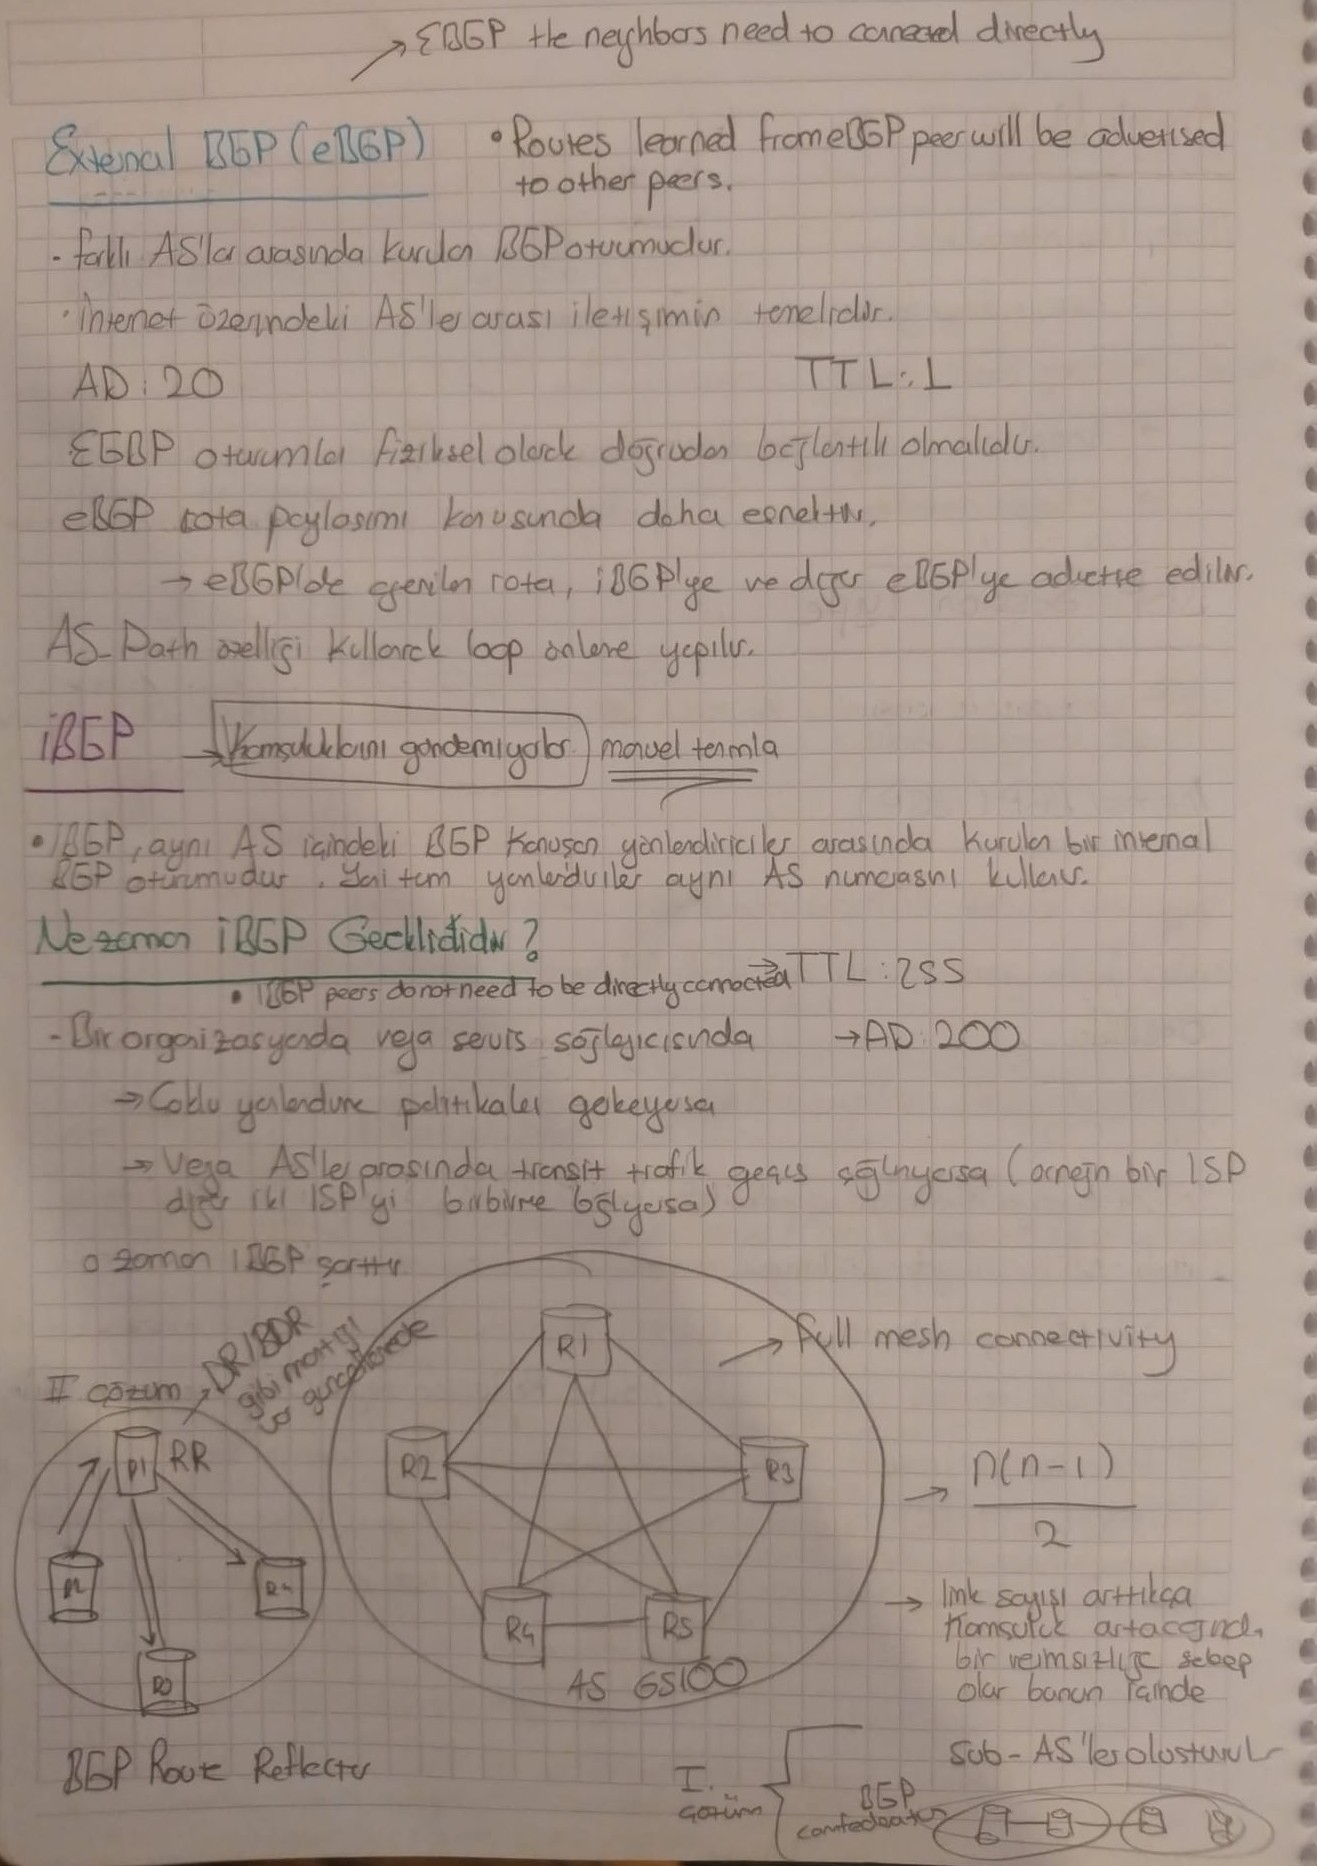 → EBGP the neyhbors need to conneced directly
External BGP (eBGP)
• Routes learned from eBGP peer will be advertised
to other peers.
- farklı AS'lar arasında kurulan BGP oturumudur.
• İnternet üzerindeki AS'ler arası iletişimin temelidir.
AD: 20
TTL: 1
EGBP oturumlar fiziksel olarak doğrudan bağlantılı olmalıdır.
eBGP rota paylaşımı konusunda daha esnektir.
→ eBGP'de öğrenilen rota, iBGP'ye ve diğer eBGP'ye edilir.
AS_Path özelliği kullanarak loop önleme yapılır.
iBGP
→ Komşuluklarını göndermiyorlar) manuel tanımla
• iBGP, aynı AS içindeki BGP konuşan yönlendiriciler arasında kurulan bir internal
BGP oturumudur. Yani tüm yönlendiriciler aynı AS numarasını kullanır.
Ne zaman iBGP Gereklidir?
• IBGP peers do not need to be directly connected
→ TTL: 255
- Bir organizasyonda veya servis sağlayıcısında
→ AD: 200
→ Çoklu yönlendirme politikaları gerekiyorsa
→ Veya AS'ler arasında transit trafik geçiş sağlanıyorsa (örneğin bir ISP
diğer iki ISP'yi birbirine bağlıyorsa)
o zaman IBGP şarttır.
II çözüm
→ DR/BDR
gibi mantığı
R1 RR
R2
R4
BGP Route Reflector
R1
R2
R3
R4
R5
AS 65100
→ full mesh connectivity
→ n(n-1)
2
→ link sayısı arttıkça
komşuluk artacağından
bir verimsizliğe sebep
olur bunun içinde
sub-AS'ler oluşturulur
I.
çözüm
BGP
confederation